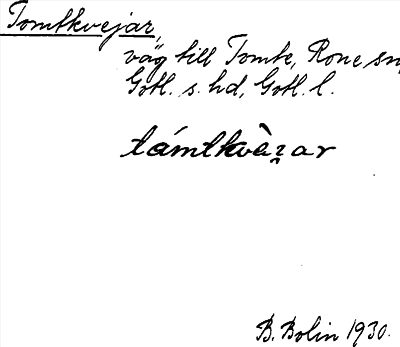 Tomtkvejar,
väg till Tomte, Rone sn,
Gotl. s. hd, Gotl. l.
támtkvèʐar
B. Bolin 1930.